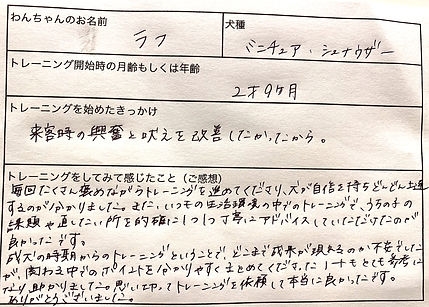 わんちゃんのお名前
ラフ
犬種
ミニチュア・シュナウザー
トレーニング開始時の月齢もしくは年齢
2才9ケ月
トレーニングを始めたきっかけ
来客時の興奮と吠えを改善したかったから。
トレーニングをしてみて感じたこと（ご感想）
毎回たくさん褒めながらトレーニングを進めてくださり、犬が自信を持ちどんどん上達
するのが分かりました。また、いつもの生活環境の中でのトレーニングで、うちの子の
課題や直したい所を的確に1つ1つ丁寧にアドバイスしていただけたので
良かったです。
成犬の時期からのトレーニングということで、どこまで成果が現れるのか不安でした
が、関わる中でのポイントを分かりやすくまとめてくださった ノートもとても参考に
なり助かりました。思い切ってトレーニングを依頼して本当に良かったです。
ありがとうございました。